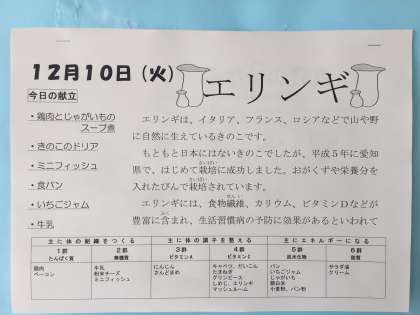 12月10日（火）
エリンギ
今日の献立
・鶏肉とじゃがいもの
スープ煮
・きのこのドリア
・ミニフィッシュ
・食パン
・いちごジャム
・牛乳
エリンギは、イタリア、フランス、ロシアなどで山や野
に自然に生えているきのこです。
もともと日本にはないきのこでしたが、平成５年に愛知
県で、はじめて栽培に成功しました。おがくずや栄養分を
入れたびんで栽培されています。
エリンギには、食物繊維、カリウム、ビタミンＤなどが
豊富に含まれ、生活習慣病の予防に効果があるといわれて
主に体の組織をつくる 主に体の調子を整える 主にエネルギーになる
１群 ２群 ３群 ４群 ５群 ６群
たんぱく質 無機質 ビタミンA ビタミンC 炭水化物 脂質
鶏肉 牛乳 にんじん キャベツ、だいこん パン サラダ油
ベーコン 粉末チーズ さんどまめ たまねぎ いちごジャム クリーム
ミニフィッシュ グリンピース じゃがいも
しめじ、エリンギ
マッシュルーム 小麦粉、パン粉